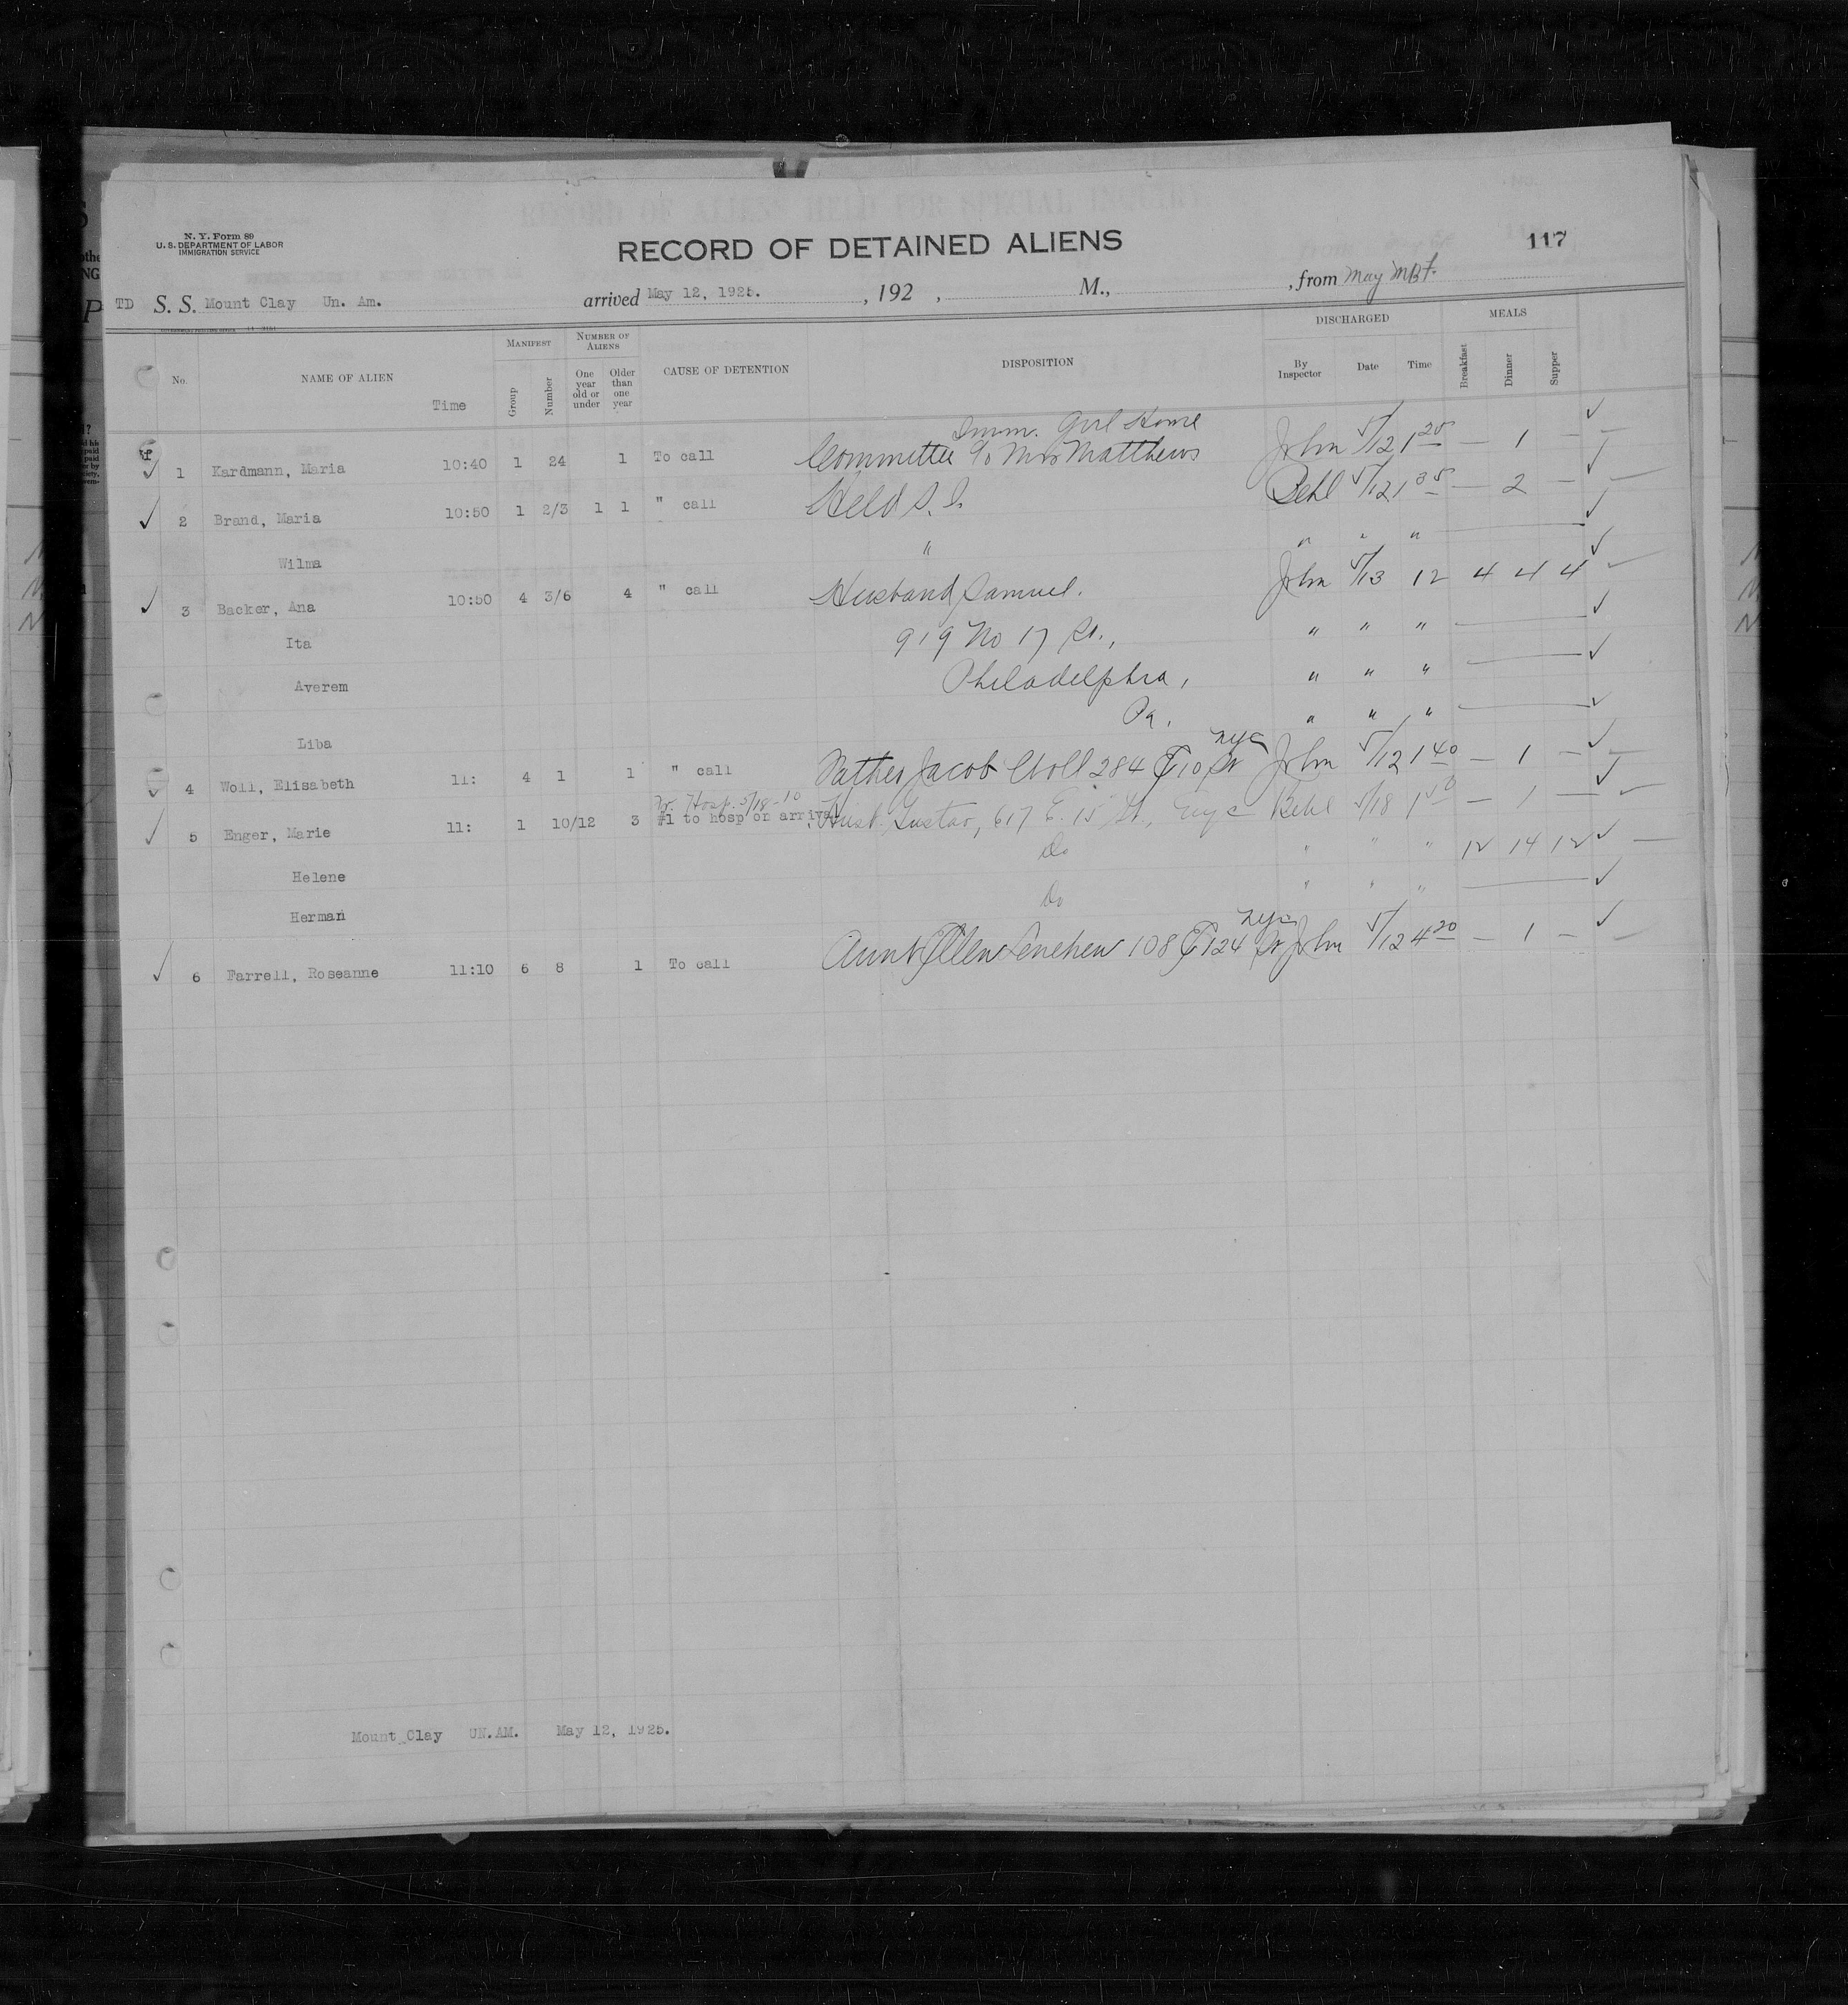 N. Y. Form 89
U. S. DEPARTMENT OF LABOR
IMMIGRATION SERVICE
RECORD OF DETAINED ALIENS
117
TD S. S. Mount Clay Un. Am. arrived May 12, 1925. , 192 , M., , from May
No. NAME OF ALIEN Time MANIFEST Group Number NUMBER OF ALIENS One year old or under Older than one year CAUSE OF DETENTION DISPOSITION DISCHARGED By Inspector Date Time MEALS Breakfast Dinner Supper
Imm. Girl Home
1 Kardmann, Maria 10:40 1 24 1 To call Committee c/o Mrs Matthews John 5/12 1 20 — 1 — ✓
✓ 2 Brand, Maria 10:50 1 2/3 1 1 " call Held S. I. 5/12 1 35 — 2 — ✓
Wilma " " " " ✓
✓ 3 Backer, Ana 10:50 4 3/6 4 " call Husband Samuel. John 5/13 12 4 4 4 ✓
Ita 919 No 17 St., " " " ✓
Averem Philadelphia, " " " ✓
Liba Pa. " " " ✓
nyc
✓ 4 Woll, Elisabeth 11: 4 1 1 " call Father Jacob Woll 284 E 10 St John 5/12 1 40 — 1 — ✓
Hosp. 5/18-10
✓ 5 Enger, Marie 11: 1 10/12 3 #1 to hosp on arrival Husb. Gustav, 617 E. 15 St., nyc 5/18 1 50 — 1 — ✓
Helene Do " " " 12 14 12 ✓
Herman Do " " " ✓
nyc
✓ 6 Farrell, Roseanne 11:10 6 8 1 To call Aunt Ellen Lenehen 108 E 124 St John 5/12 4 20 — 1 — ✓
Mount Clay UN.AM. May 12, 1925.